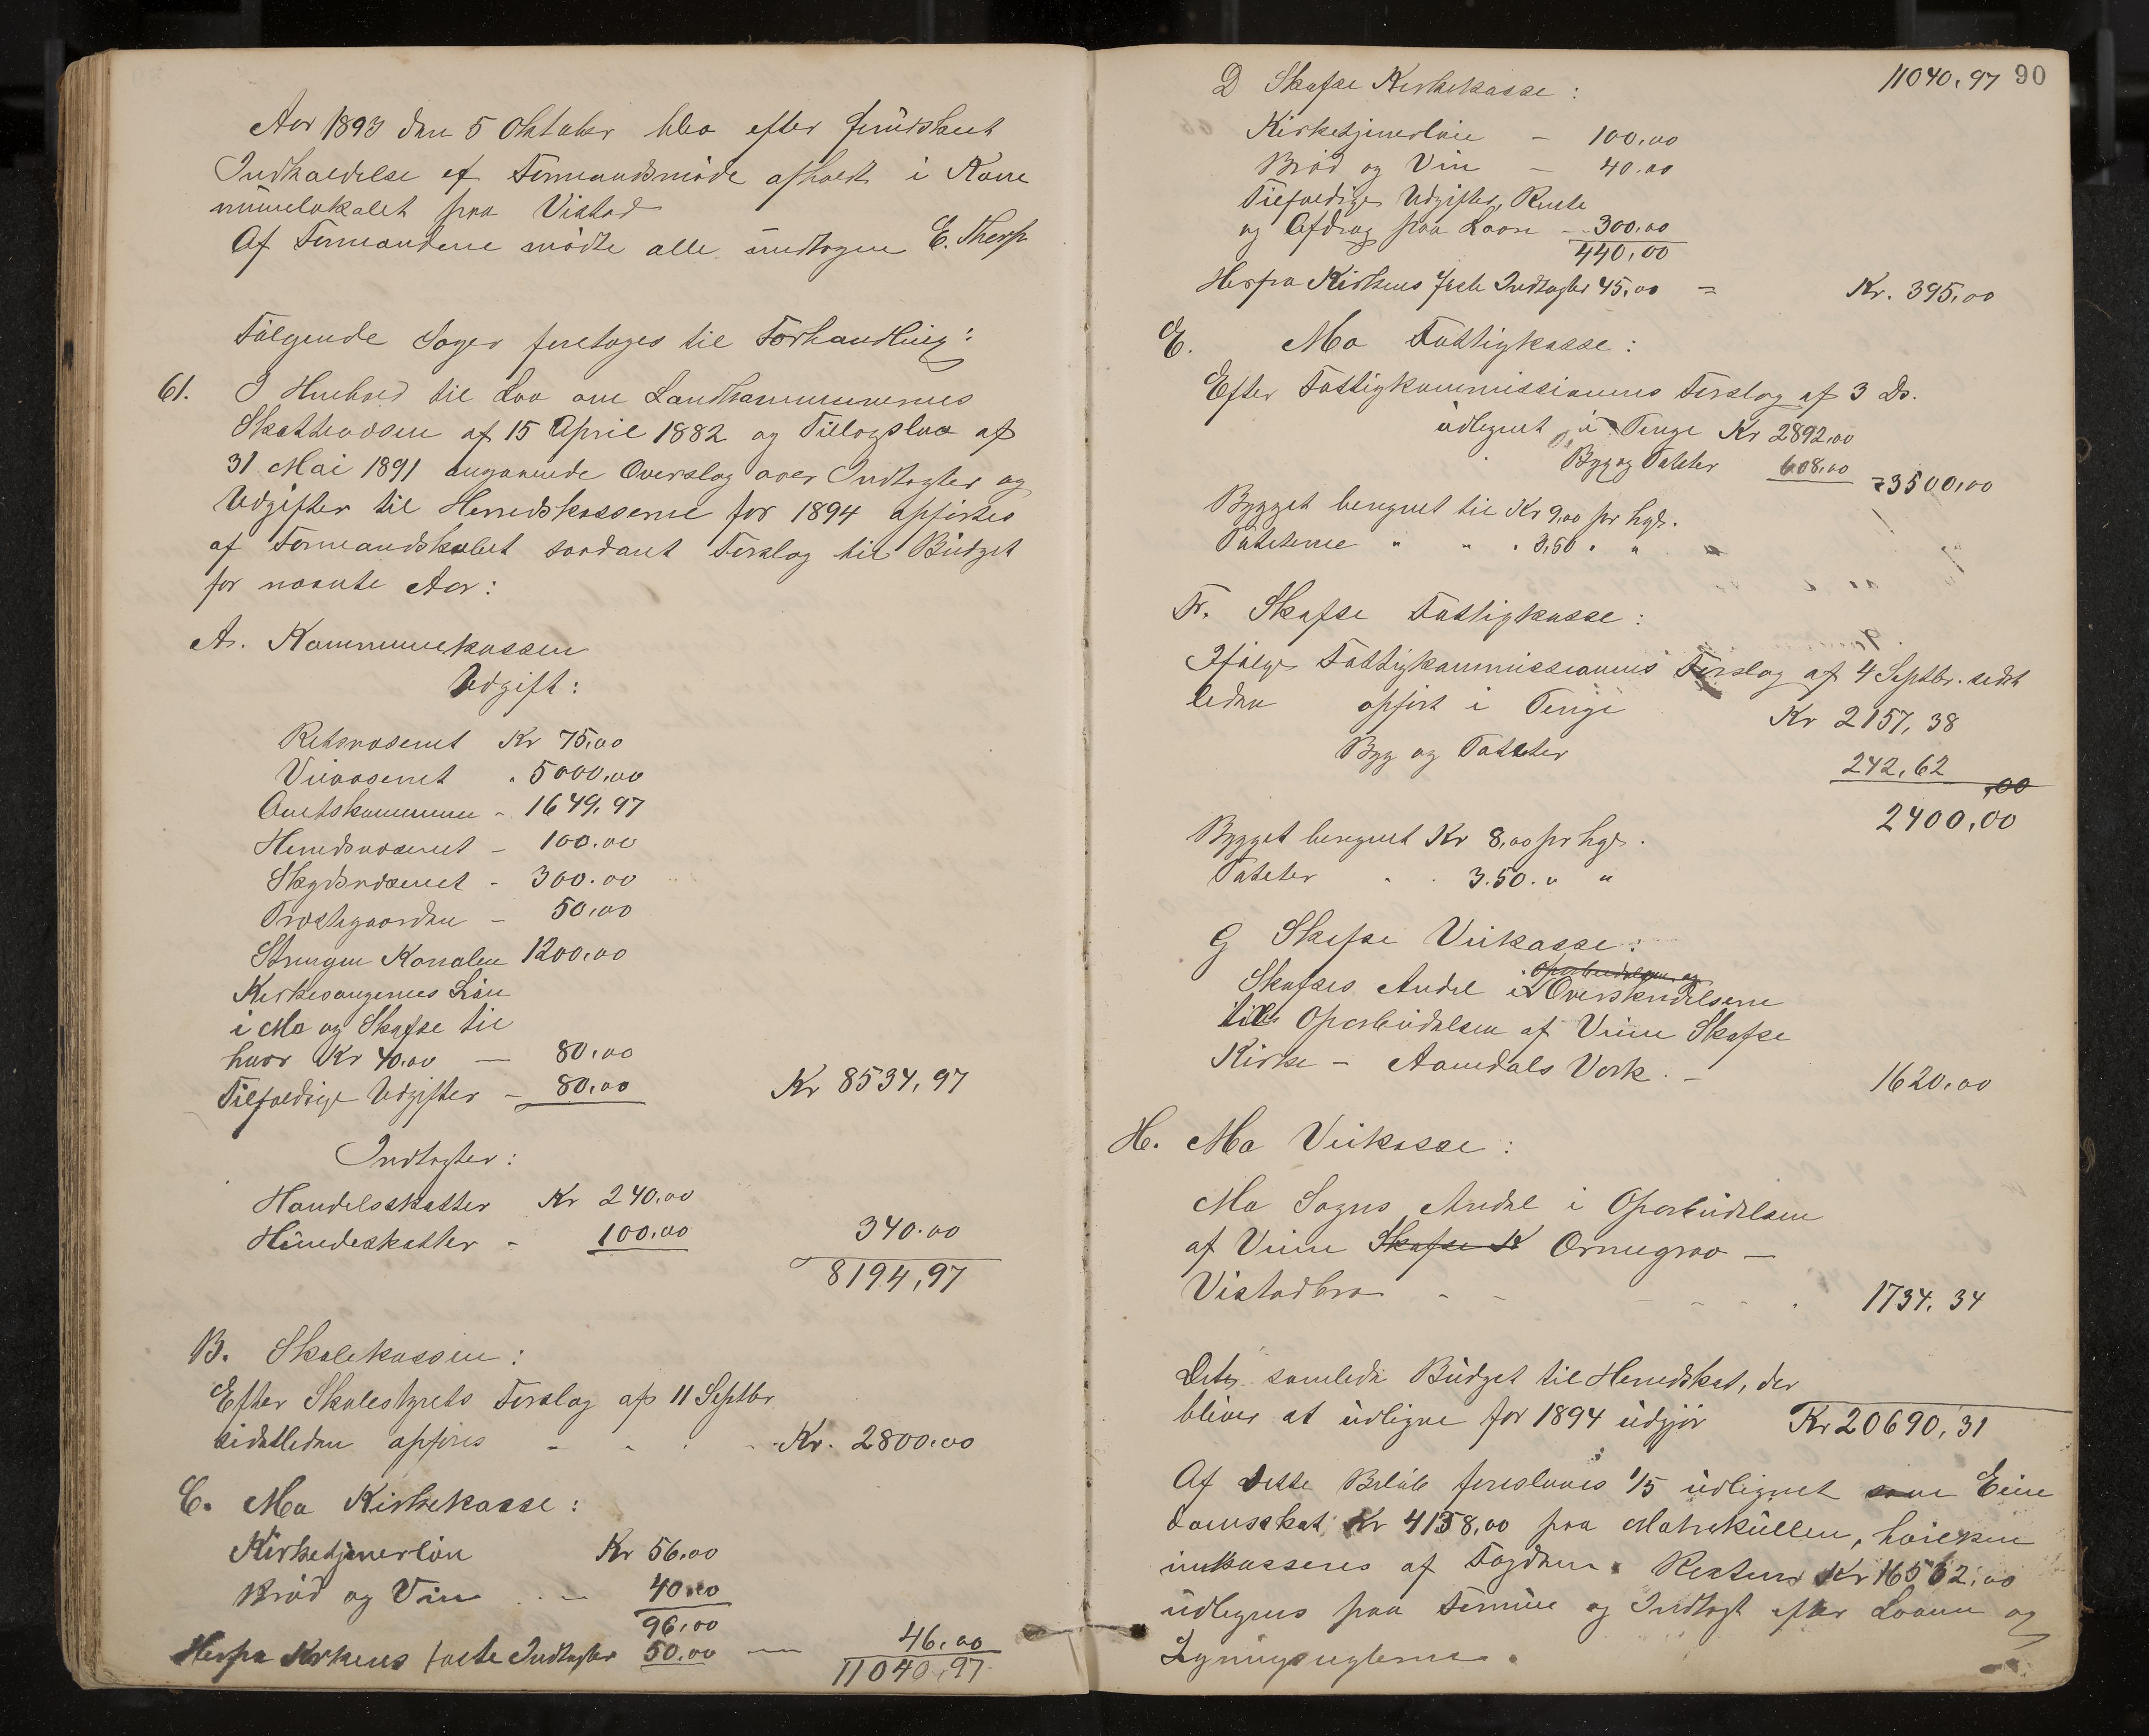 Aar 1893 den 5 Oktober blev efter forudskeet
Indkaldelse af Formandsmøde afholdt i Kom
munelokalet paa Vistad
Af Formændene mødte alle undtagen E. Therp
Følgende Sager foretoges til Forhandling:
61. I Henhold til Lov om Landkommunernes
Skattevæsen af 15 April 1882 og Tillægslov af
31 Mai 1891 angaaende Overslag over Indtægter og
Udgifter til Herredskasserne for 1894 opførtes
af Formandskabet saadant Forslag til Budget
for nævnte Aar:
A. Kommunekassen
Udgift:
Retsvæsenet Kr 75,00
Veivæsenet " 5000,00
Amtskommunen - 1649,97
Herredsvæsenet - 100.00
Skydsvæsenet - 300.00
Præstegaarden - 50,00
Strengen Kanalen 1200,00
Kirkesangernes Løn
i Mo og Skafse til
hver Kr 40.00 — 80,00
Tilfældige Udgifter - 80,00 Kr 8534,97
Indtægter:
Handelsskatter Kr 240,00
Hundeskatter - 100,00 340.00
8194,97
B. Skolekassen:
Efter Skolestyrets Forslag af 11 Septbr
sidstleden opføres - - - - Kr. 2800.00
C. Mo Kirkekasse:
Kirketjenerløn Kr 56,00
Brød og Vin - - 40.00
96,00
Herfra Kirkens faste Indtægter 50.00 — 46,00
11040,97
11040,97 90
D Skafse Kirkekasse:
Kirketjenerløn - 100,00
Brød og Vin - 40.00
Tilfældige Udgifter, Rente
og Afdrag paa Laan - 300,00
440,00
Herfra Kirkens faste Indtægter 45,00 = Kr. 395,00
E. Mo Fattigkasse:
Efter Fattigkommissionens Forslag af 3 Ds.
udlignet i Penge Kr 2892,00
Byg og Poteter 608,00 = 3500,00
Bygget beregnet til Kr 9,00 pr hgd.
Poteterne " " " 3,50 " "
F. Skafse Fattigkasse:
Ifølge Fattigkommissionens Forslag af 4 Septbr. sidst
leden opført i Penge Kr 2157,38
Byg og Poteter 242,62 ,00
2400,00
Bygget beregnet Kr 8,00 pr hgd.
Poteter " " 3.50. " "
G Skafse Veikasse:
Oparbeidelsen og
Skafses Andel i Overskridelserne
til Oparbeidelsen af Veien Skafse
Kirke - Aamdals Verk. - 1620,00
H. Mo Veikasse:
Mo Sogns Andel i Oparbeidelsen
af Veien Skafse K Ormegrav —
Vistadbro - - - - - 1734,34
Det samlede Budget til Herredskat, der
bliver at udligne for 1894 udgjør Kr 20690,31
Af dette Beløb foreslaaes 1/5 udlignet som Eien
domsskat, Kr 4138,00 paa Matrikullen, hvilken
inkasseres af Fogden. Resten Kr 16552,00
udlignes paa Formue og Indtægt efter Loven og
Ligningsreglerne.